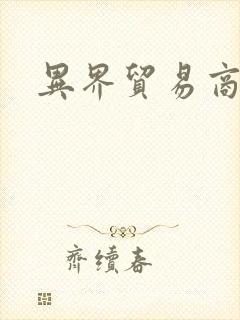 異界貿易商
齊續春